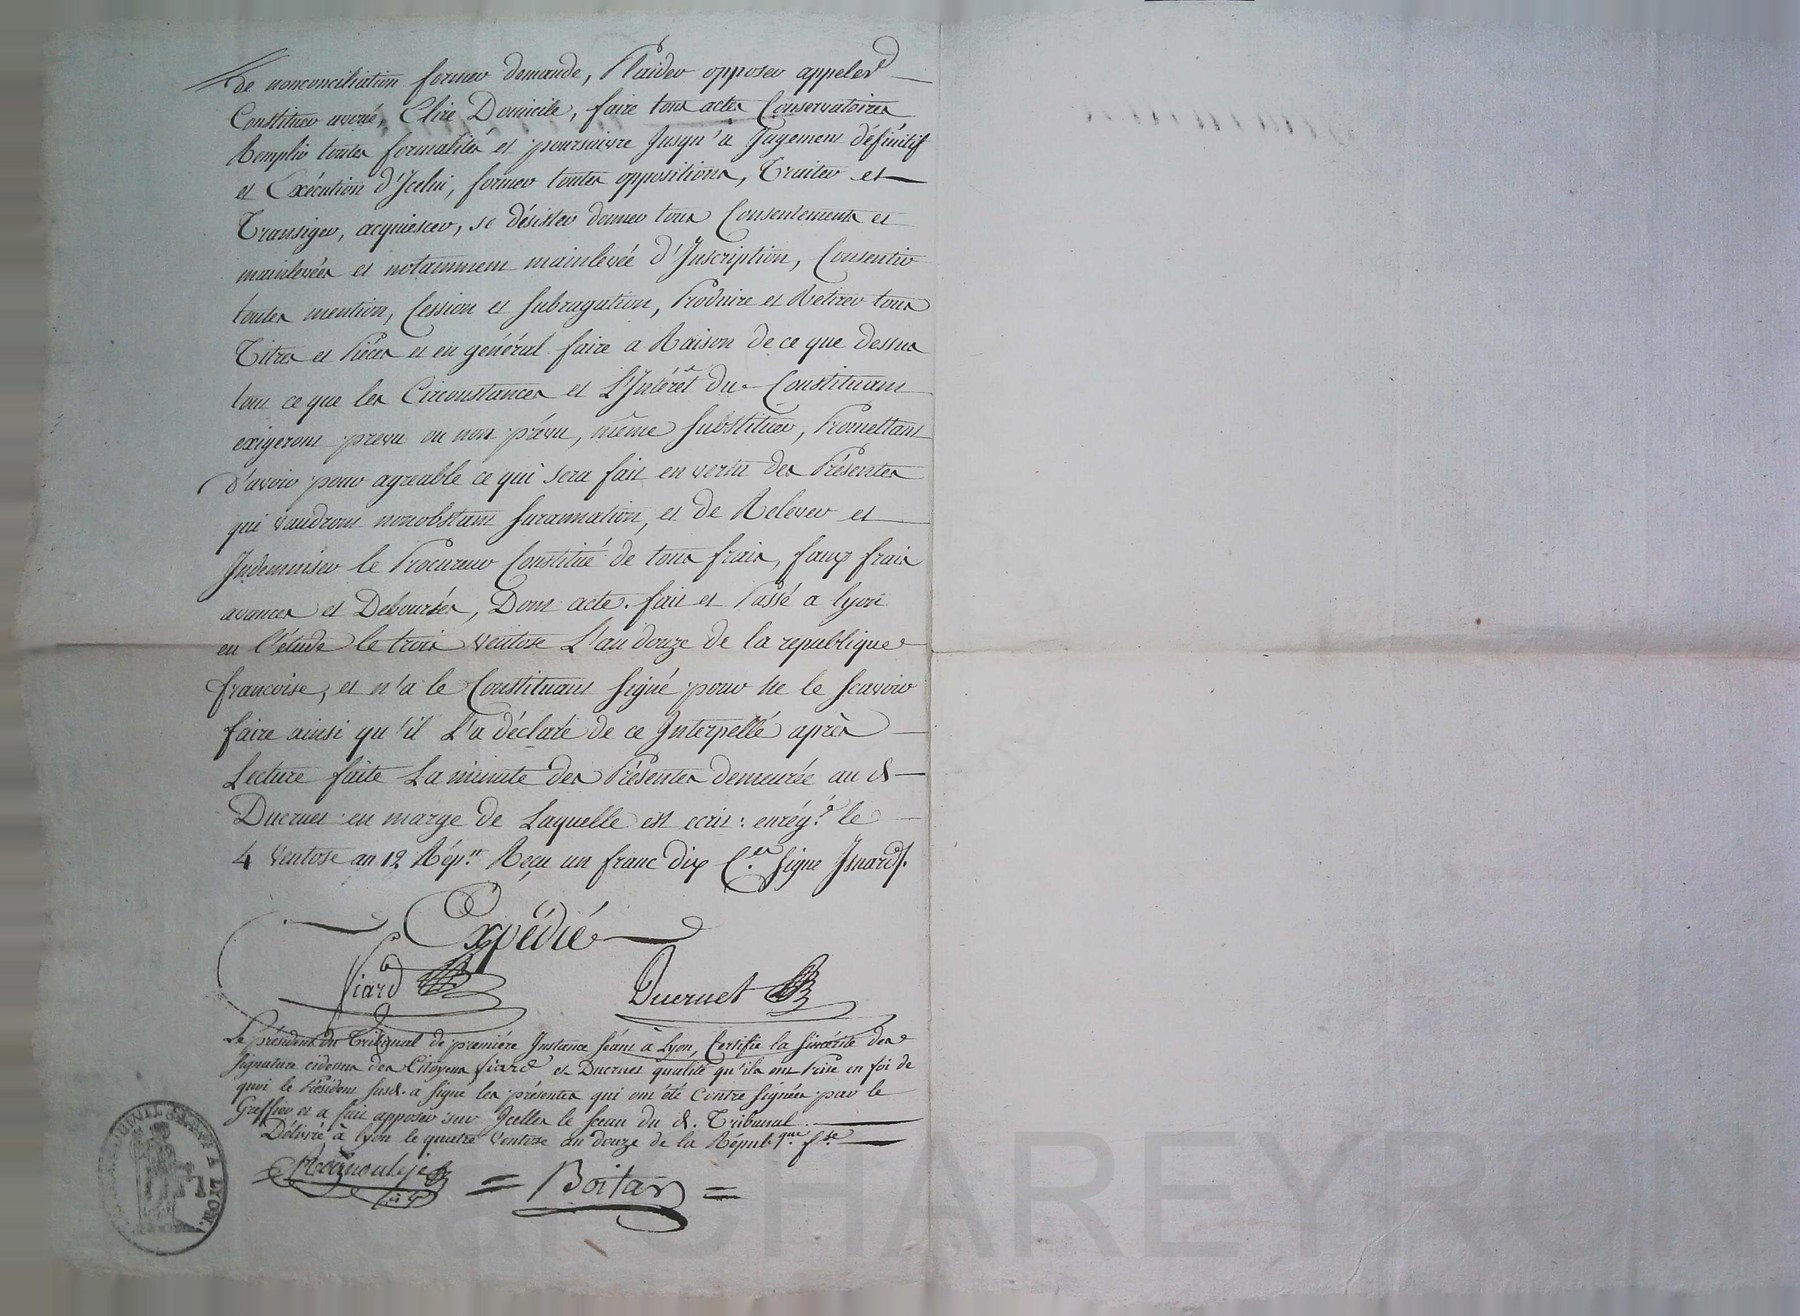 de nonconciliation former demande, Plaider opposer appeler
Constituer avoué, Elire Domicile, faire tous actes Conservatoires
Remplir toutes formalités et poursuivre Jusqu'a Jugement définitif
et Exécution d'Jcelui, former toutes oppositions, Traiter et
Transiger, acquiescer, se désister donner tous Consentements et
mainlevées et notamment mainlevée d'Jnscription, Consentir
toutes mention, Cession et Subrogation, Produire et Retirer tous
Titres et Pièces et en général faire a Raison de ce que dessus
tout ce que les Circonstances et L'Jntérêt du Constituant
exigeront prevu ou non prévu, même Substituer, Promettant
d'avoir pour agreable ce qui sera fait en vertu des Présentes
qui vaudront nonobstant Surannation, et de Relever et
Jndemniser le Procureur Constitué de tous frais, faux frais
avances et Deboursés, Dont acte. fait et Passé a lyon
en l'étude le trois Ventose L'an douze de la republique
francoise, et n'a le Constituant Signé pour ne le Scavoir
faire ainsi qu'il L'a déclaré de ce Jnterpellé après
Lecture faite La minute des Présentes demeurée au d.
Ducruet en marge de Laquelle est ecrit : enrég.é le
4 Ventose an 12 Rép.n Reçu un franc dix C.es Signé Jsnard.
Expédié
Sicard Ducruet
Le président du Tribunal de première Jnstance Séant à Lyon, Certifie la Sincérité des
Signature cidessus des Citoyens Sicard et Ducruet qualité qu'ils ont Prise en foi de
quoi le Président Susd. a Signé les présentes qui ont été Contre Signées par le
Greffier et a fait apposer sur Jcelles le Sceau du d. Tribunal
Délivré à lyon le quatre Ventose an douze de la Répub.que f.se
Boitard
A LYON.
CHAREYRON